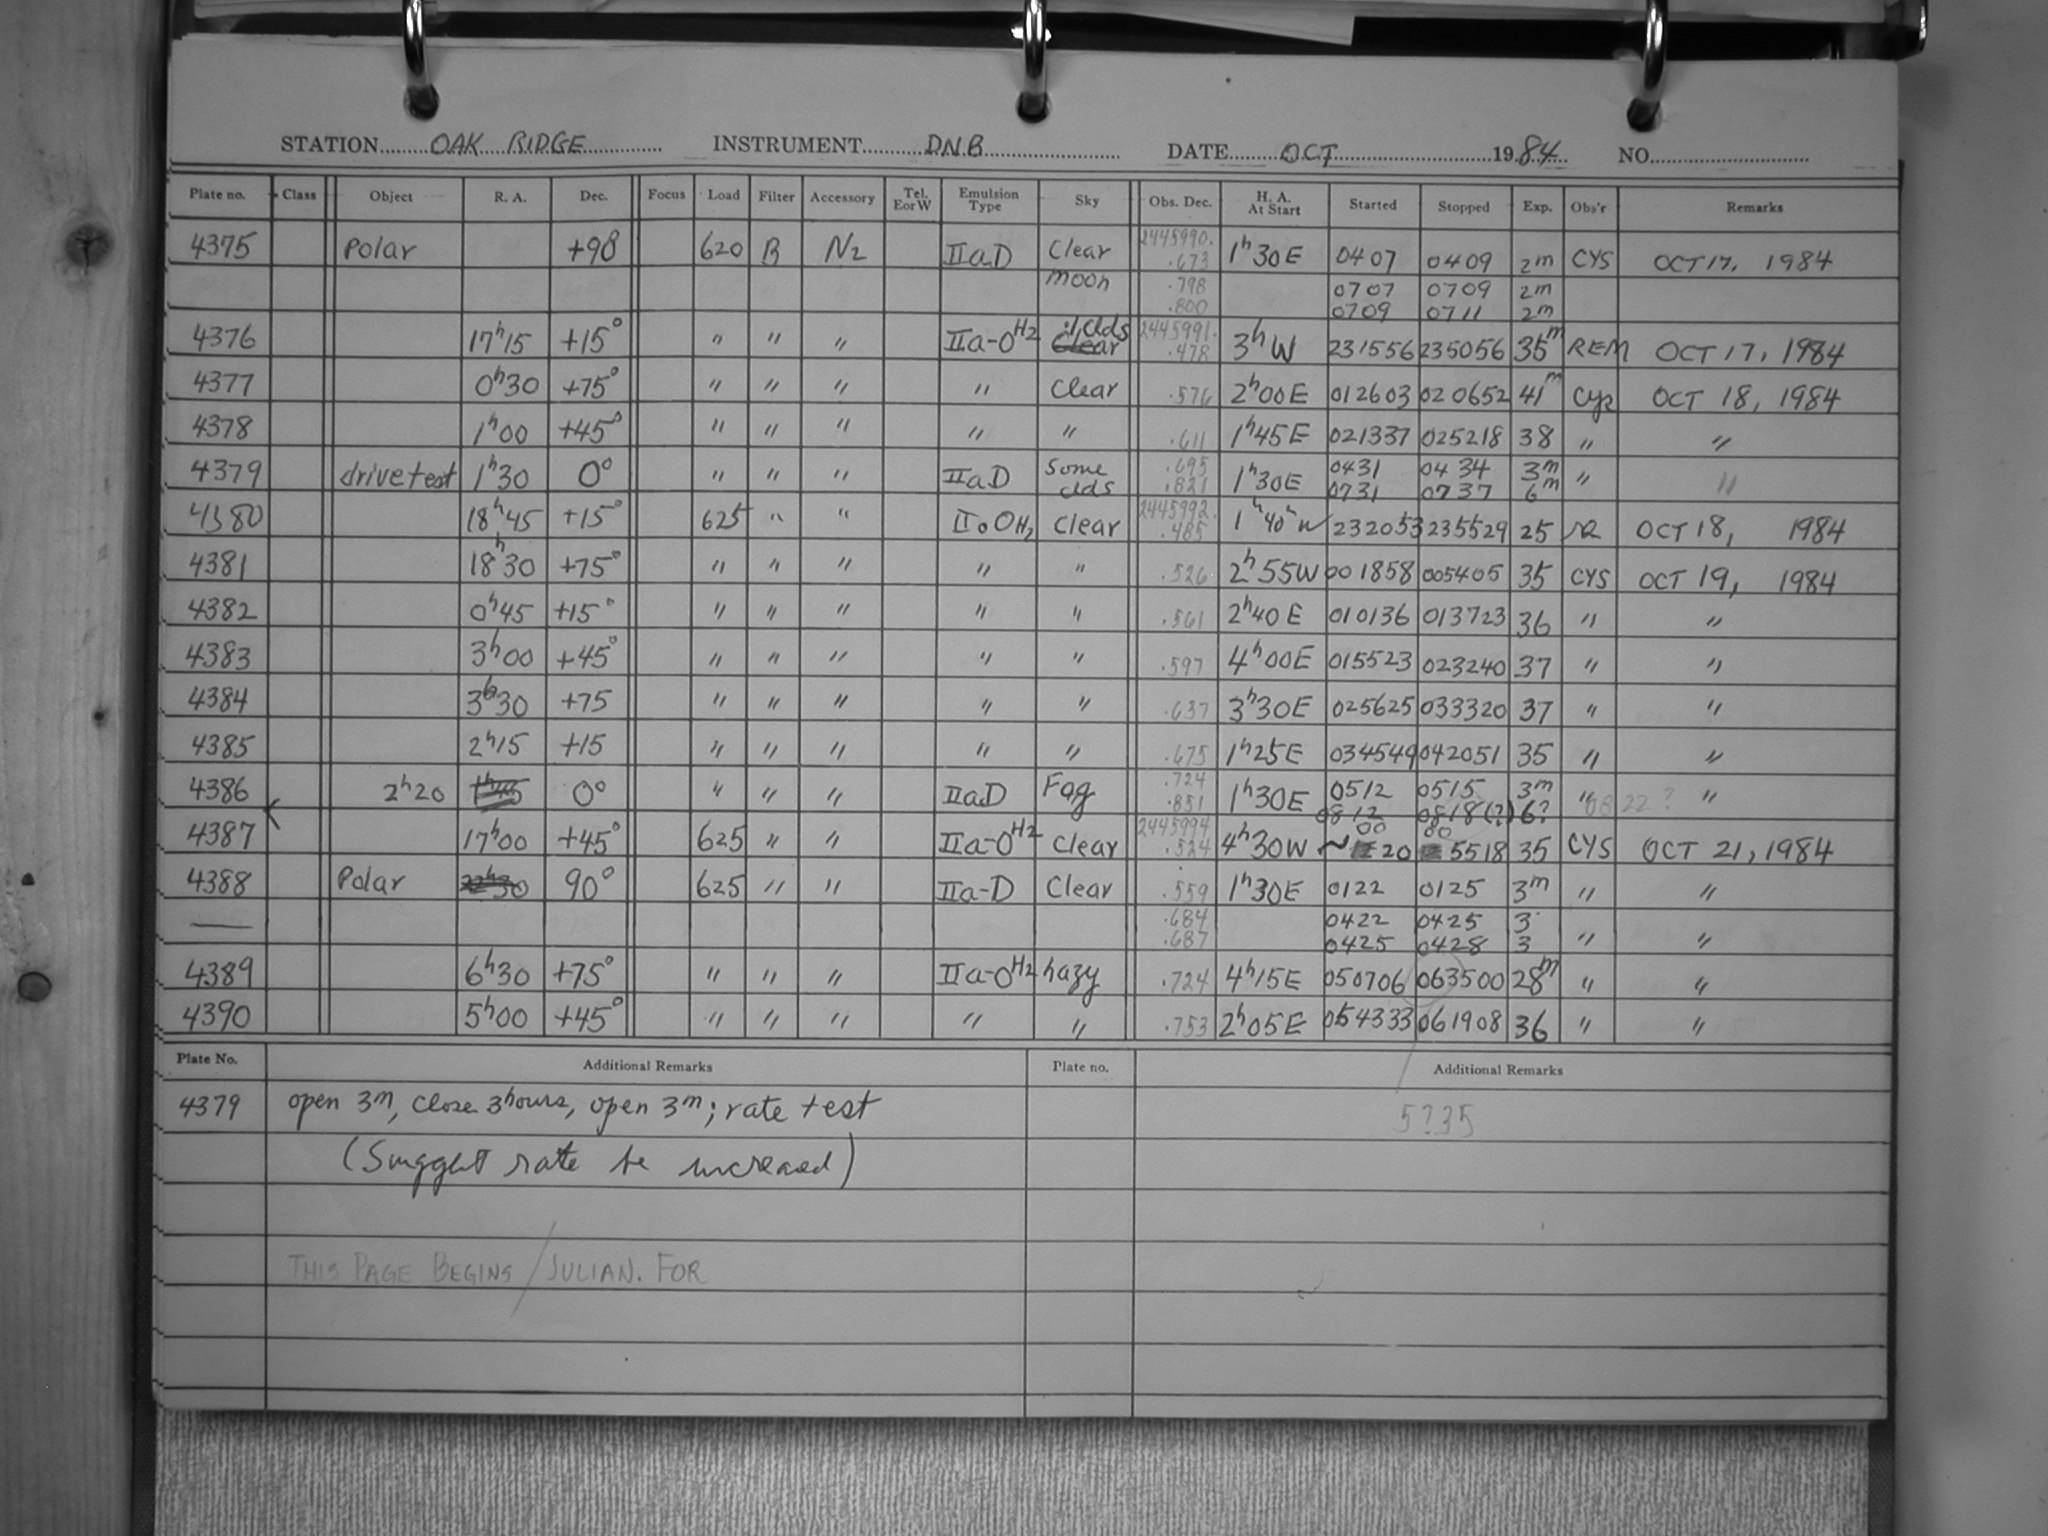 STATION OAK RIDGE INSTRUMENT DNB DATE OCT 1984 NO.
Plate no. Class Object R. A. Dec. Focus Load Filter Accessory Tel. E or W Emulsion Type Sky Obs. Dec. H. A. At Start Started Stopped Exp. Obs'r Remarks
4375 Polar +90 620 B N2 IIaD Clear 2445990. .673 1h30E 0407 0409 2m CYS OCT 17, 1984
moon .798 0707 0709 2m
.800 0709 0711 2m
4376 17h15 +15° " " " IIa-OH2 clds 2445991. .478 3hW 231556 235056 35m REM OCT 17, 1984
4377 0h30 +75° " " " " Clear .576 2h00E 012603 020652 41m Cys OCT 18, 1984
4378 1h00 +45° " " " " " .611 1h45E 021337 025218 38 " "
4379 drive test 1h30 0° " " " IIaD Some clds .695 1h30E 0431 0434 3m " "
.821 0731 0737 6m
4380 18h45 +15° 625 " " IIaOH2 Clear 2445992. .485 1h40hW 232053 235529 25 OCT 18, 1984
4381 18h30 +75° " " " " " .526 2h55W 001858 005405 35 CYS OCT 19, 1984
4382 0h45 +15° " " " " " .561 2h40E 010136 013723 36 " "
4383 3h00 +45° " " " " " .597 4h00E 015523 023240 37 " "
4384 3h30 +75 " " " " " .637 3h30E 025625 033320 37 " "
4385 2h15 +15 " " " " " .675 1h25E 034549 042051 35 " "
4386 2h20 0° " " " IIaD Fog .724 1h30E 0512 0515 3m " "
.851 0812 0818(?) 6? 0822?
4387 17h00 +45° 625 " " IIa-OH2 Clear 2445994 .524 4h30W ~ 00 20 00 5518 35 CYS OCT 21, 1984
4388 Polar 90° 625 " " IIa-D Clear .559 1h30E 0122 0125 3m " "
— .684 0422 0425 3
.687 0425 0428 3 " "
4389 6h30 +75° " " " IIa-OH2 hazy .724 4h15E 050706 063500 28m " "
4390 5h00 +45° " " " " " .753 2h05E 054333 061908 36 " "
Plate No. Additional Remarks Plate no. Additional Remarks
4379 open 3m, close 3hours, open 3m; rate test 5?35
(Suggest rate be increased)
THIS PAGE BEGINS / JULIAN. FOR